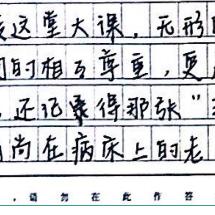 这堂大课，无形
的相互尊重，更
，还记曩得那张“
尚在病床上的老
，请勿在此作答